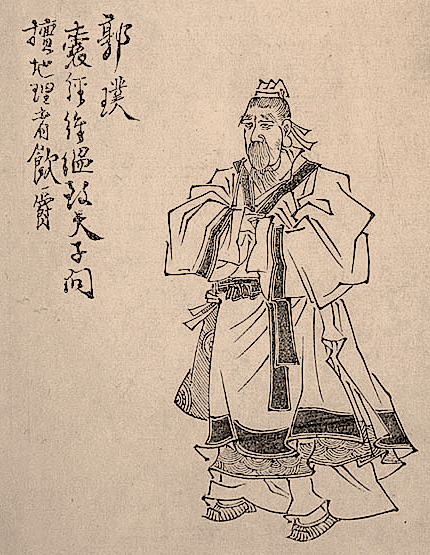 郭璞
囊經緼致天子問
擅地理者飲一爵